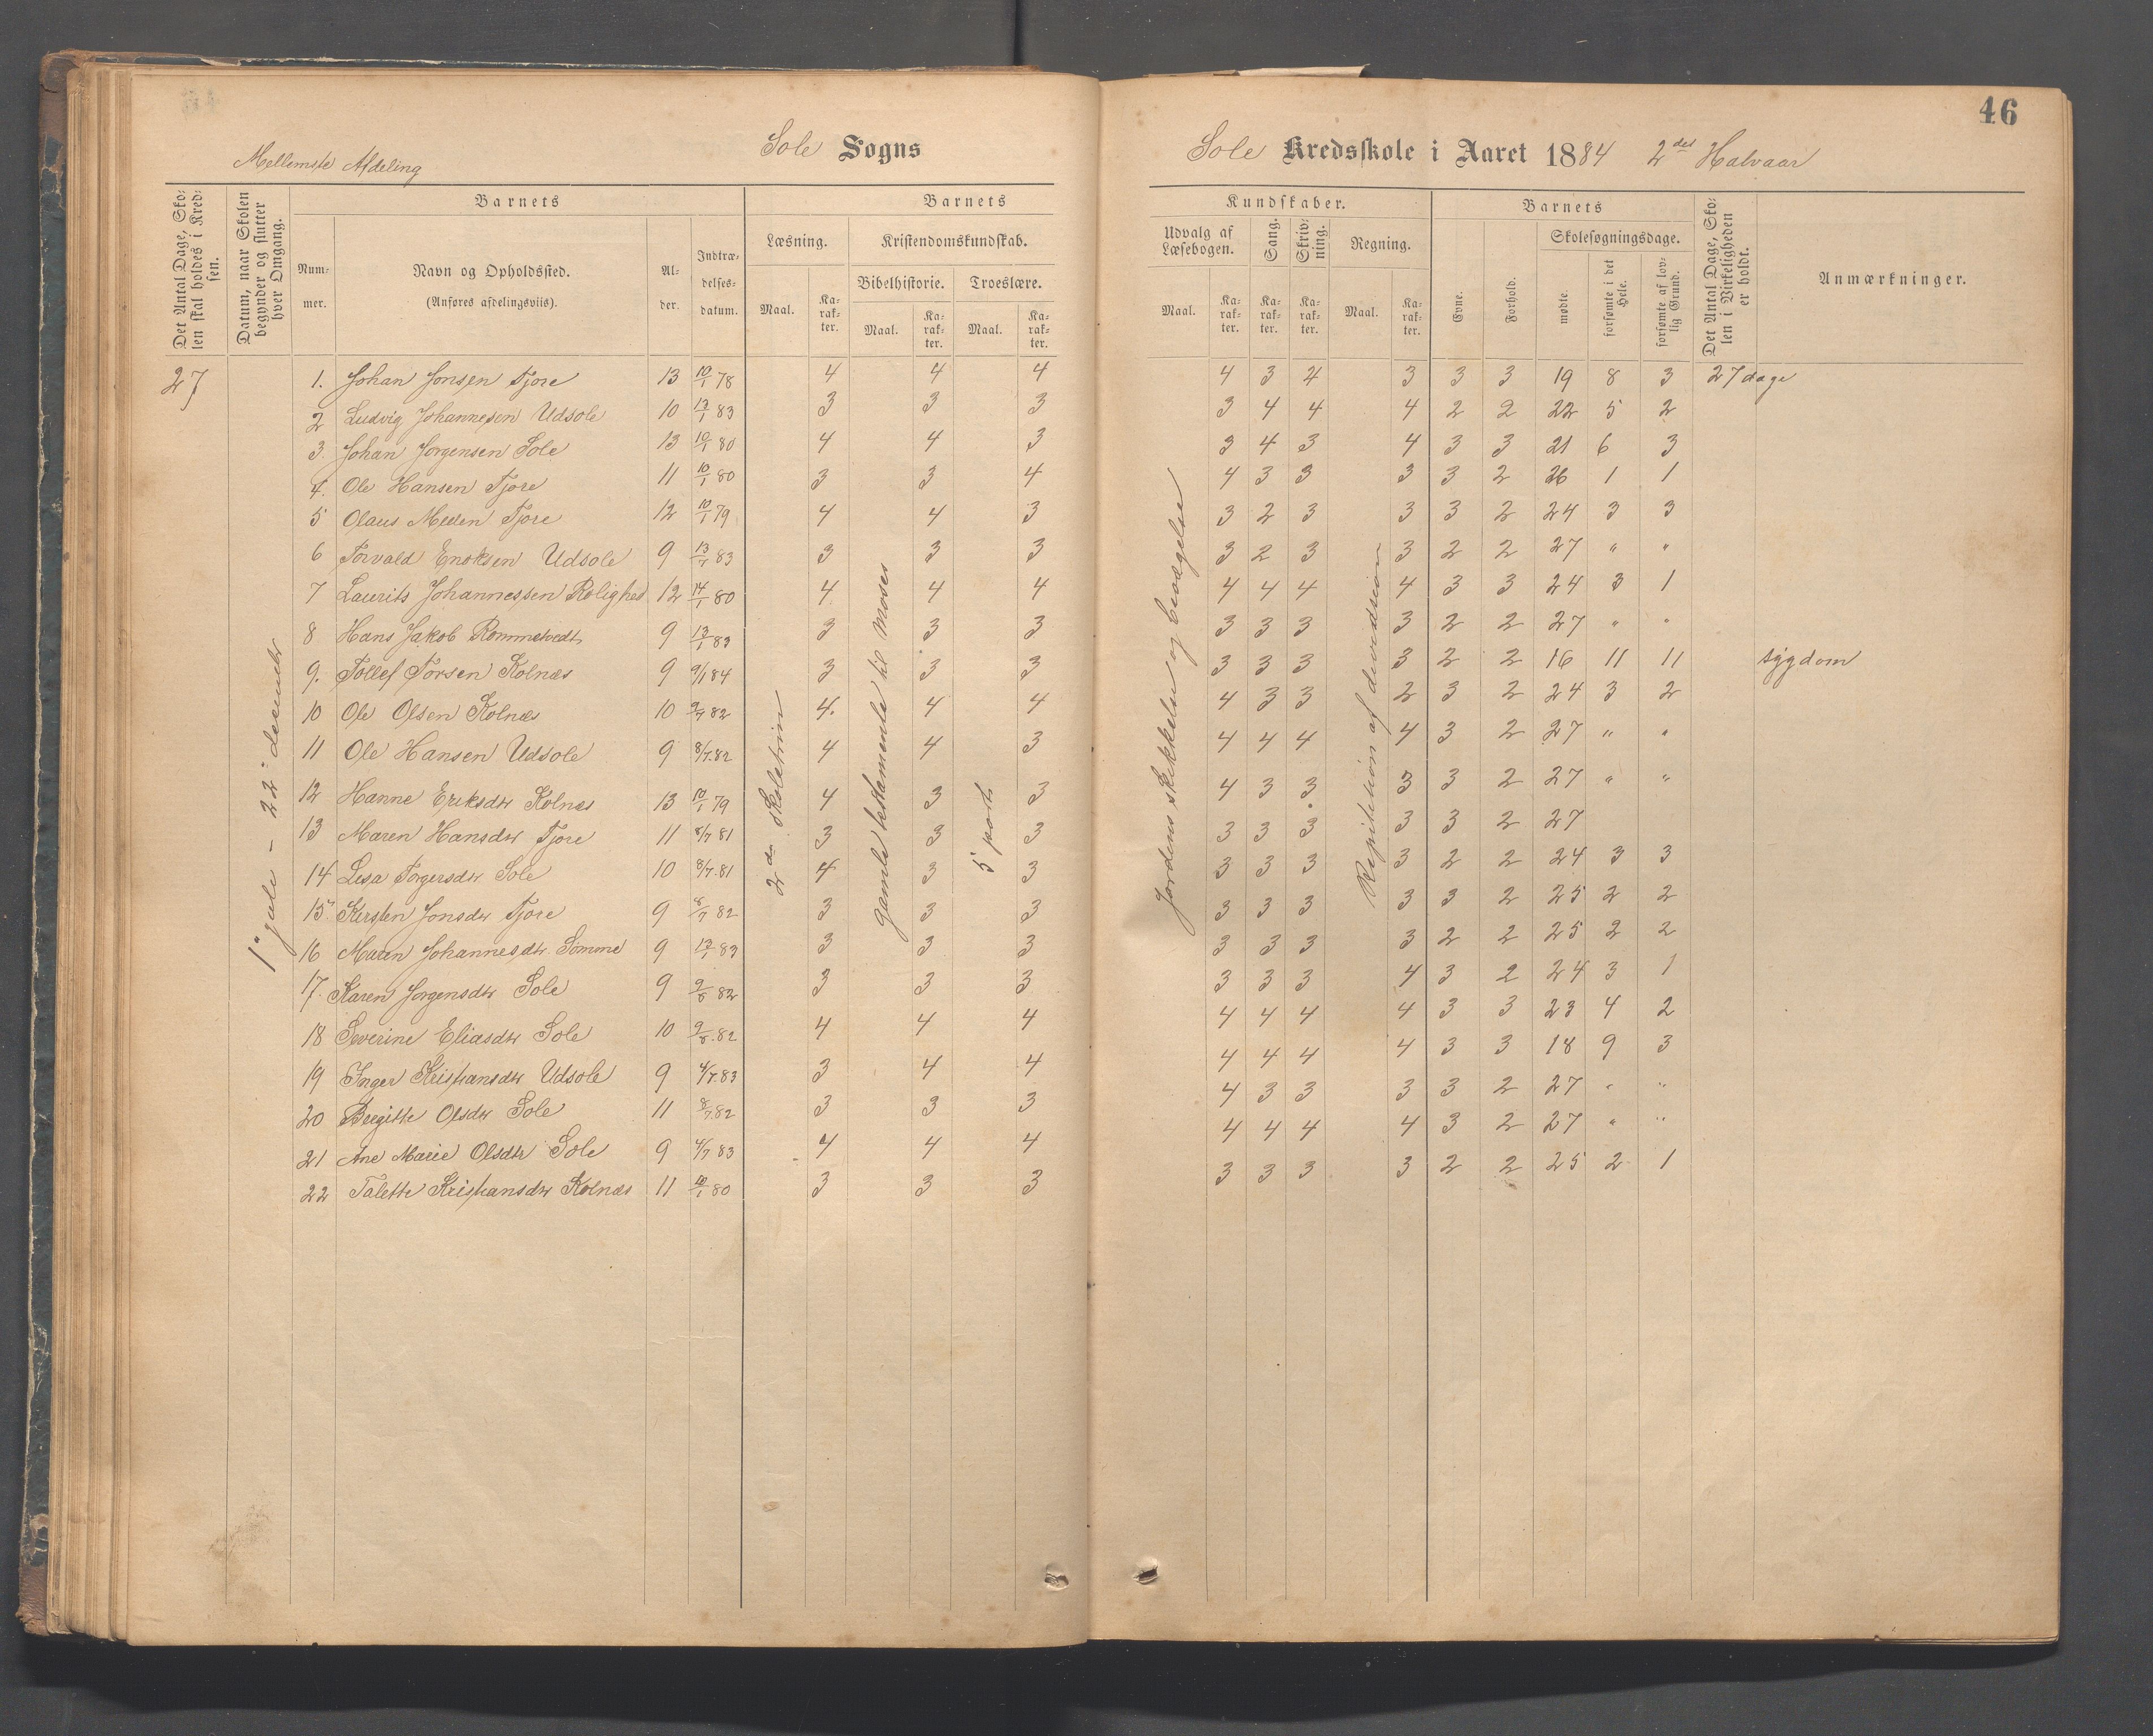 46
Mellemste Afdeling
Sole Sogns
Sole Kredsskole i Aaret 1884 2det Halvaar
Det Antal Dage, Sko-
len skal holdes i Kred-
sen.
Datum, naar Skolen
begynder og slutter
hver Omgang.
Barnets
Num-
mer.
Navn og Opholdssted.
(Anføres afdelingsviis).
Al-
der.
Indtræ-
delses-
datum.
Barnets
Læsning.
Maal.
Ka-
rak-
ter.
Kristendomskundskab.
Bibelhistorie.
Maal.
Ka-
rak-
ter.
Troeslære.
Maal.
Ka-
rak-
ter.
Kundskaber.
Udvalg af
Læsebogen.
Maal.
Ka-
rak-
ter.
Sang.
Ka-
rak-
ter.
Skriv-
ning.
Ka-
rak-
ter.
Regning.
Maal.
Ka-
rak-
ter.
Barnets
Evne.
Forhold.
Skolesøgningsdage.
mødte.
forsømte i det
Hele.
forsømte af lov-
lig Grund.
Det Antal Dage, Sko-
len i Virkeligheden
er holdt.
Anmærkninger.
27 1. Johan Jonsen Tjore 13 10/1 78 4 4 4 4 3 4 3 3 3 19 8 3 27 dage
2 Ludvig Johannesen Udsole 10 13/1 83 3 3 3 3 4 4 4 2 2 22 5 2
3. Johan Jorgensen Sole 13 10/1 80 4 4 3 3 4 3 4 3 3 21 6 3
4. Ole Hansen Tjore 11 10/1 80 3 3 4 4 3 3 3 3 2 26 1 1
5 Olaus Tjore 12 10/1 79 4 4 3 3 2 3 3 3 2 24 3 3
6 Torvald Enoksen Udsole 9 13/1 83 3 3 3 3 2 3 3 2 2 27 " "
7 Laurits Johannessen Rolighed 12 14/1 80 4 4 4 4 4 4 4 3 3 24 3 1
8 Hans Jakob Rommetvedt 9 13/1 83 3 3 3 3 3 3 3 2 2 27 " "
9. Tollef Torsen Kolnæs 9 9/1 84 3 3 3 3 3 3 3 2 2 16 11 11 sygdom
10 Ole Olsen Kolnæs 10 9/7 82 4. 4 4 4 3 3 2 3 2 24 3 2
11 Ole Hansen Udsole 9 8/7.82 4 4 3 4 4 4 4 3 2 27 " "
12 Hanne Eriksdtr Kolnæs 13 10/1 79 4 3 3 4 3 3 3 3 2 27 " "
13 Maren Hansdtr Tjore 11 8/7 81 3 3 3 3 3 3 3 3 2 27
14 Lesa Torgersdtr Sole 10 8/7.81 4 3 3 3 3 3 3 2 2 24 3 3
15. Kirsten Jonsdtr Tjore 9 8/7 82 3 3 3 3 3 3 3 3 2 25 2 2
16 Maren Johannesdtr Sømme 9 13/1 83 3 3 3 3 3 3 3 2 2 25 2 2
17. Karen Jorgensdtr Sole 9 9/8 82 3 3 3 3 3 3 4 3 2 24 3 1
18 Severine Eliasdtr Sole 10 9/8.82 4 4 4 4 4 4 4 3 3 23 4 2
19 Inger Kristiansdtr Udsole 9 4/7.83 3 4 4 4 4 4 4 3 3 18 9 3
20 Bergitte Olsdtr Sole 11 8/7 82 3 3 3 4 3 3 3 3 2 27 " "
21 Ane Marie Olsdtr Sole 9 4/7 83 4 4 4 4 4 4 4 3 2 27 " "
22 Talette Kristiansdtr Kolnæs 11 10/1 80 3 3 3 3 3 3 3 2 2 25 2 1
1" - 22" december
2den Skoletrin
gamle testamente til Moses
5 part
Jordens skikkelse og bevægelse
Repitition af devidsion